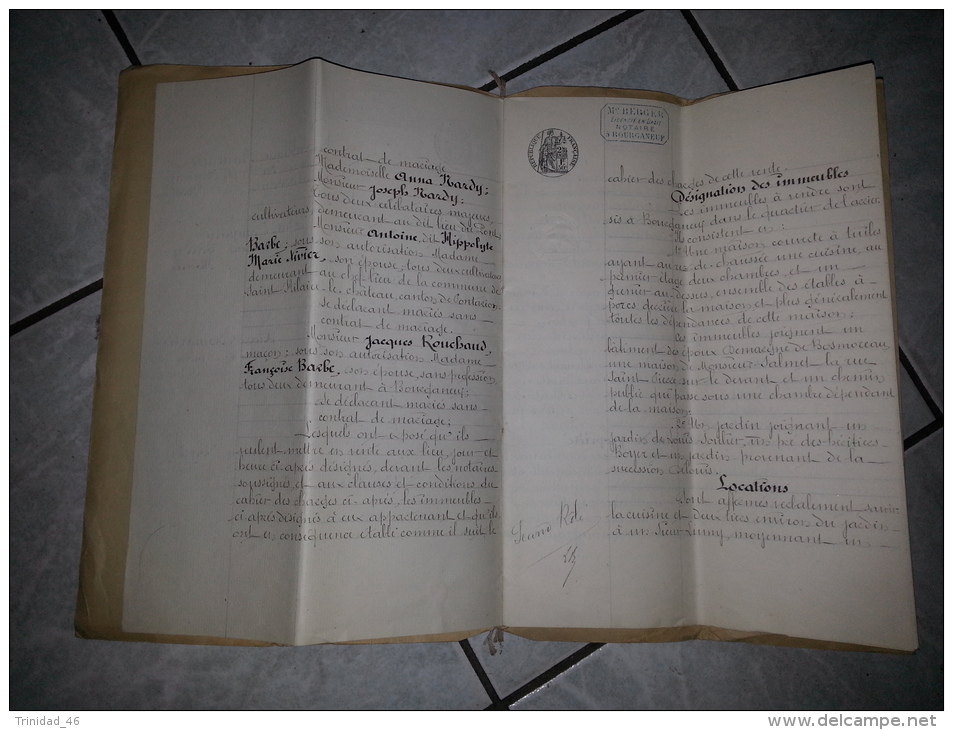 contrat de mariage
Mademoiselle Anna Nardy;
Monsieur Joseph Nardy;
tous deux célibataires majeurs,
cultivateurs, demeurant au dit lieu du Pont
Monsieur Antoine, dit Hippolyte
Barbe; sous son autorisation Madame
Marie Nivier, son épouse; tous deux cultivateurs
demeurant au chef-lieu de la commune de
Saint Hilaire-le-château, canton de Pontarion
se déclarant mariés sans
contrat de mariage.
Monsieur Jacques Rouchaud,
maçon; sous son autorisation Madame
Françoise Barbe, son épouse, sans profession,
tous deux demeurant à Bourganeuf;
se déclarant mariés sans
contrat de mariage;
Lesquels ont exposé qu'ils
veulent mettre en vente aux lieu, jour et
heure ci-après désignés, devant les notaires
soussignés et aux clauses et conditions du
cahier des charges ci-après, les immeubles
ci-après désignés à eux appartenant et qu'ils
ont en conséquence établi comme il suit le
Mce BERGER
LICENCIÉ EN DROIT
NOTAIRE
A BOURGANEUF
REPUBLIQUE FRANÇAISE
cahier des charges de cette vente.
Désignation des immeubles
Les immeubles à vendre sont
sis à Bourganeuf dans le quartier de
Ils consistent en:
1° Une maison couverte à tuiles
ayant au rez-de-chaussée une cuisine, au
premier étage deux chambres, et un
grenier au-dessus, ensemble des étables à
porcs derrière la maison, et plus généralement
toutes les dépendances de cette maison;
Ces immeubles joignent un
bâtiment des époux Demargne de Bosmoreau,
une maison de Monsieur Salmet, la rue
Saint sur le devant et un chemin
public qui passe sous une chambre dépendant
de la maison.
2° Un jardin joignant un
jardin de Louis un pré des héritiers
Boyer et un jardin provenant de la
succession
Locations
Sont affermés verbalement savoir:
la cuisine et deux tiers environ du jardin
à un Sieur moyennant un
Trinidad_46
www.delcampe.net